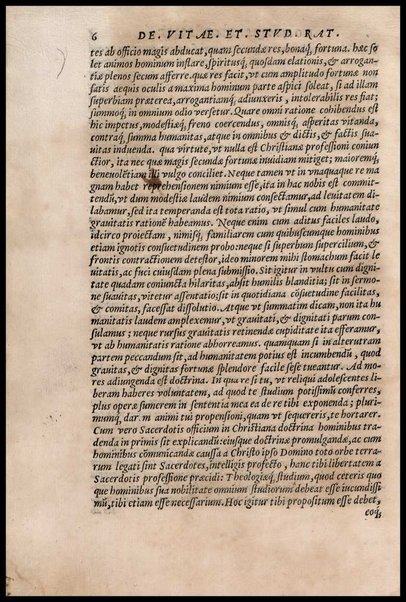 6 DE. VITAE. ET. STVD. RAT.
tes ab officio magis abducat, quam secundæ res, bonaq́; fortuna. hæc so
let animos hominum inflare, spiritusq́; quosdam elationis, & arrogan-
tiæ plenos secum afferre. quæ res facit, vt cum amplitudo fortunæ non
satis æquis oculis a maxima hominum parte aspici soleat, si ad illam
superbiam præterea, arrogantiamq́; adiunxeris, intolerabilis res fiat;
summoq́; in omnium odio versetur. Quare omni ratione cohibendus est
hic impetus, modestiæq́; freno coercendus, omnisq́; asperitas vitanda,
contraq́; summa humanitas, atque in omnibus & dictis, & factis sua-
uitas induenda. qua virtute, vt nulla est Christianæ professioni coniun
ctior, ita nec quæ magis secundæ fortunæ inuidiam mitiget; maioremq́;
beneuolētiam illi vulgo conciliet. Neque tamen vt in vnaquaque re ma
gnam habet reprehensionem nimium esse, ita in hac nobis est commit-
tendū, vt dum modestiæ laudem nimium consectamur, ad leuitatem di
labamur, sed ita temperanda est tota ratio, vt simul cum humanitate
grauitatis rationē habeamus. Neque enim cum aditus faciles laudo,
idcirco proiectam, nimisq́; familiarem cum quibuscumque hominibus
etiam ignotis consuetudinem probo: neque si superbum supercilium, &
frontis contractionem detestor, ideo minorem mihi stomachum facit le
uitatis, ac fuci cuiusdam plena submissio. Sit igitur in vultu cum digni
tate quadam coniuncta hilaritas, absit humilis blanditia; sit in sermo-
ne suauitas, vitetur assentatio: sit in quotidiana cōsuetudine facilitas,
& comitas, facessat dissolutio. Atque vt summatim dicam, non ita hu
manitatis laudem amplexemur, vt grauitati, & dignitati parum con-
sulamus; neque rursus grauitatis retinendæ cupiditate ita efferamur,
vt ab humanitatis ratione abhorreamus. quamquam si in alterutram
partem peccandum sit, ad humanitatem potius est incumbendū, quod
grauitas, & dignitas fortunæ splendore facile sese tueantur. Ad mo-
res adiungenda est doctrina. In qua re si tu, vt reliqui adolescentes li
beram haberes voluntatem, ad quod te studium potissimū conferres,
plus operæ sumerem in sententia mea ea de re tibi exponenda; pluri-
mumq́; darem animi tui propensioni, quam vt sequereris, te hortarer.
Cum vero Sacerdotis officium in Christiana doctrina hominibus tra-
denda in primis sit explicandū: eiusque doctrinæ promulgandæ, ac cum
hominibus cōmunicandæ caussa a Christo ipso Domino toto orbe terra-
rum legati sint Sacerdotes, intelligis profecto, hanc tibi libertatem a
Sacerdotis professione præcidi: Theologiæq́; studium, quod ceteris quo
que hominibus sua nobilitate omnium studiorum debeat esse iucundissi
mū, tibi etiam esse necessarium. Hoc igitur tibi propositum esse debet,
eoq́;